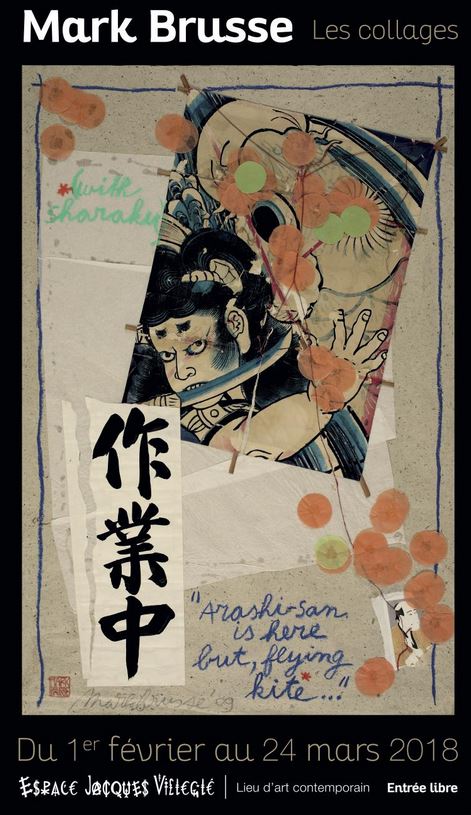 Mark Brusse Les collages
*(with
sharaku)
作業中
"Arashi-san
is here
but, flying
kite*..."
Mark brusse '09
Du 1er février au 24 mars 2018
ESPACE JACQUES VILLEGLÉ | Lieu d'art contemporain Entrée libre